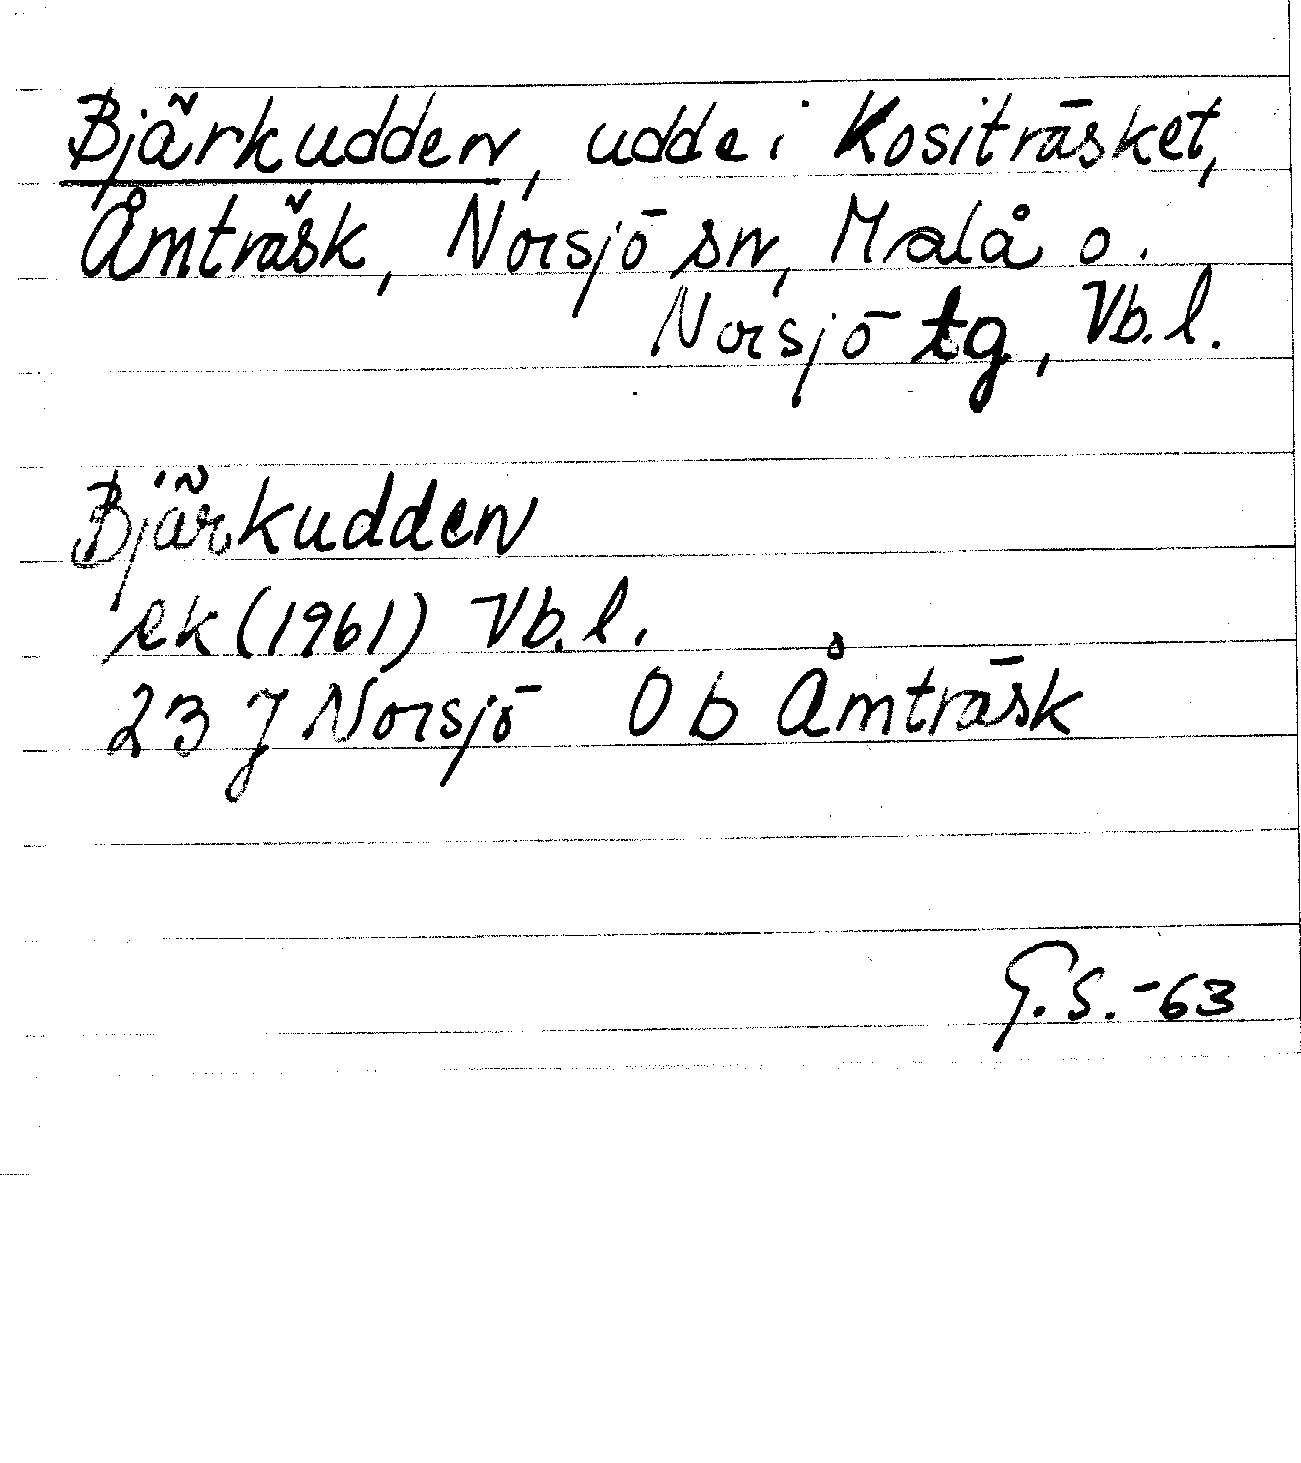 Bjärkudden, udde i Kositräsket,
Åmträsk, Norsjö sn, Malå o.
Norsjö tg, Vb. l.
Bjärkudden
ek (1961) Vb. l.
23 J Norsjö 0 b Åmträsk
G. S. -63